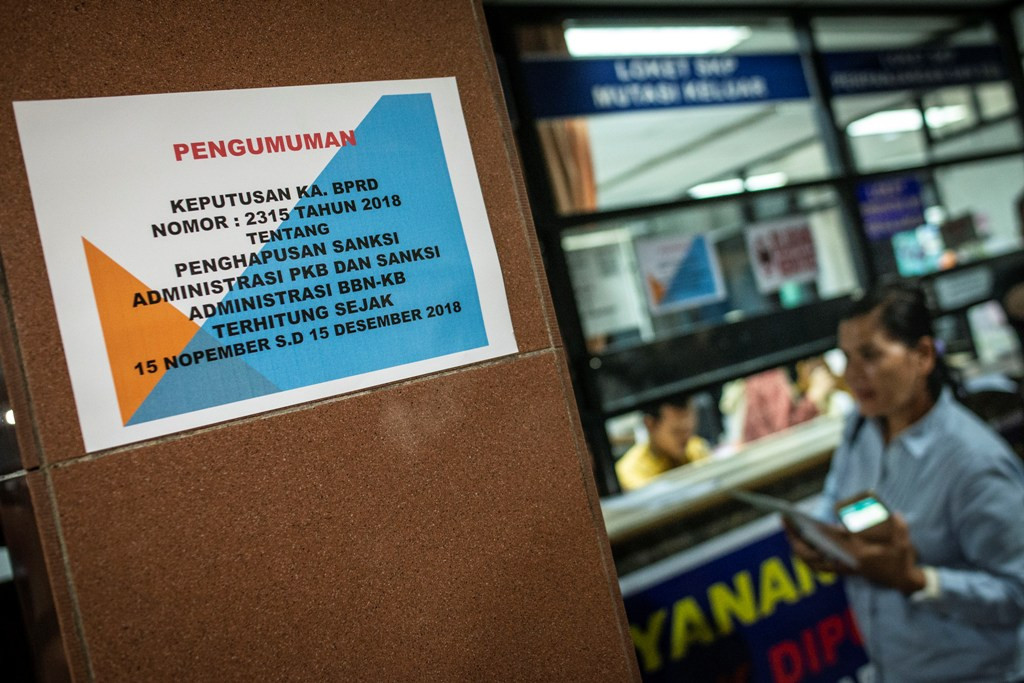 PENGUMUMAN
KEPUTUSAN KA. BPRD
NOMOR : 2315 TAHUN 2018
TENTANG
PENGHAPUSAN SANKSI
ADMINISTRASI PKB DAN SANKSI
ADMINISTRASI BBN-KB
TERHITUNG SEJAK
15 NOPEMBER S.D 15 DESEMBER 2018
LOKET SKP
MUTASI KELUAR
YANAN
DIPU